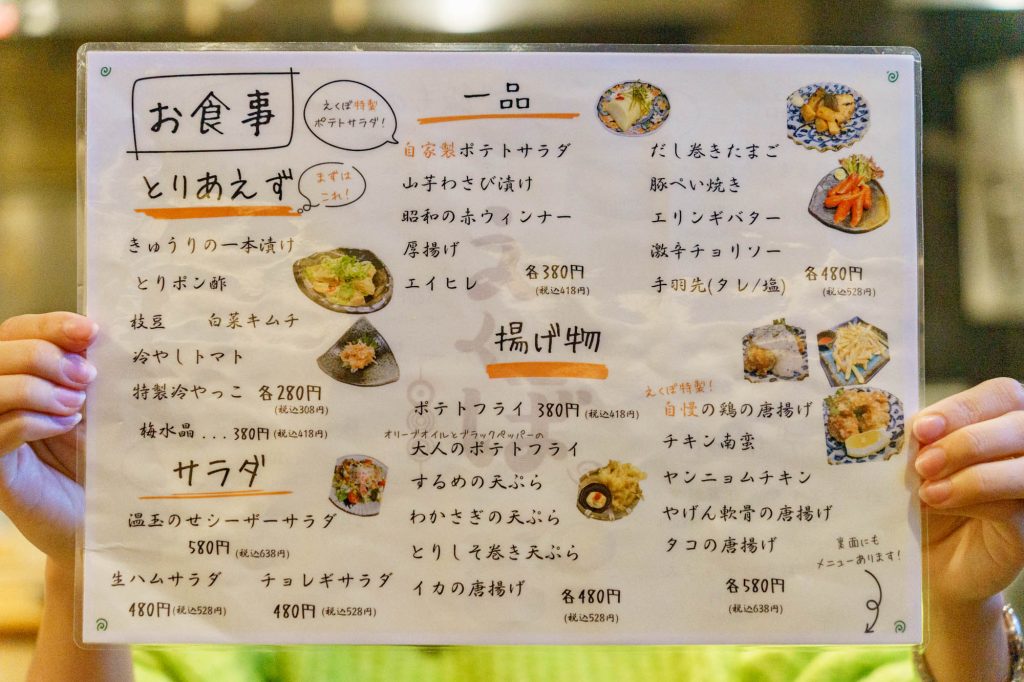 お食事
えくぼ特製
ポテトサラダ！
とりあえず
まずは
これ！
きゅうりの一本漬け
とりポン酢
枝豆 白菜キムチ
冷やしトマト
特製冷やっこ 各280円
(税込308円)
梅水晶...380円(税込418円)
サラダ
温玉のせシーザーサラダ
580円(税込638円)
生ハムサラダ チョレギサラダ
480円(税込528円) 480円(税込528円)
一品
自家製ポテトサラダ
山芋わさび漬け
昭和の赤ウィンナー
厚揚げ
エイヒレ
各380円
(税込418円)
だし巻きたまご
豚ぺい焼き
エリンギバター
激辛チョリソー
手羽先(タレ/塩)
各480円
(税込528円)
揚げ物
ポテトフライ 380円(税込418円)
オリーブオイルとブラックペッパーの
大人のポテトフライ
するめの天ぷら
わかさぎの天ぷら
とりしそ巻き天ぷら
イカの唐揚げ
各480円
(税込528円)
えくぼ特製！
自慢の鶏の唐揚げ
チキン南蛮
ヤンニョムチキン
やげん軟骨の唐揚げ
タコの唐揚げ
各580円
(税込638円)
裏面にも
メニューあります！
えくぼ